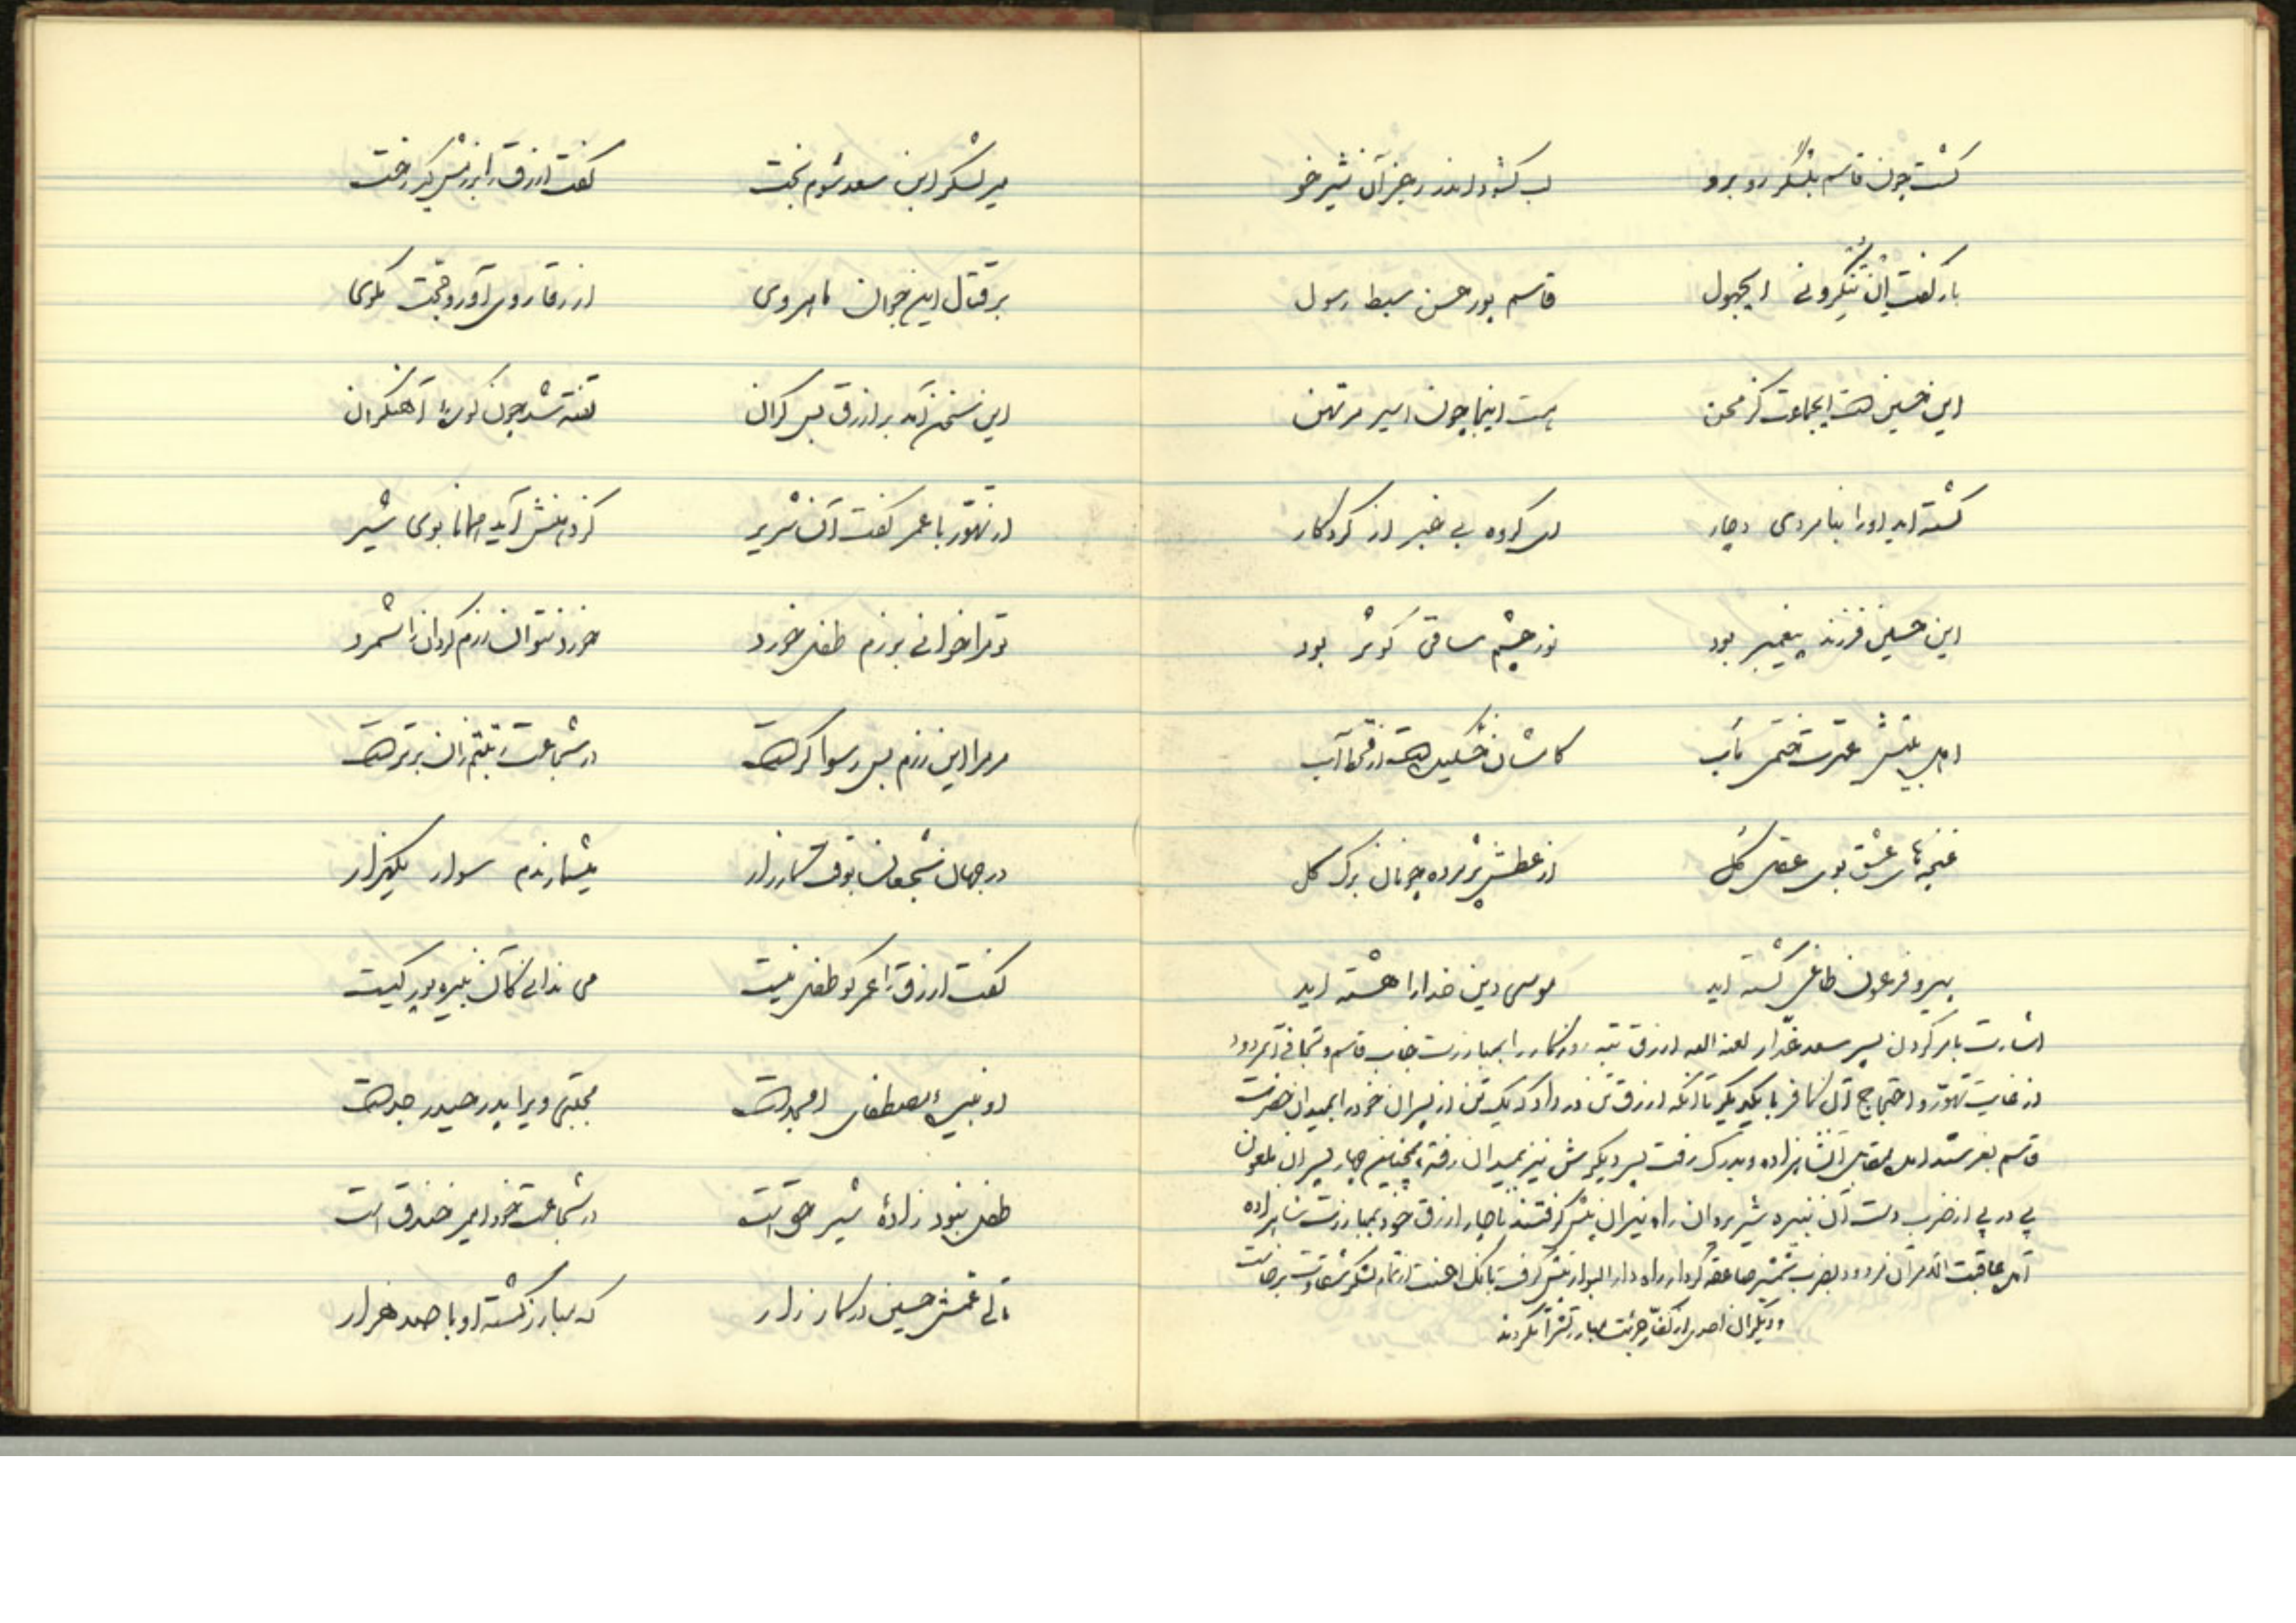 گشت چون قاسم بلشکر روبرو لب کشود اندر رجز آن شیر خو
بار گفت ایجهول قاسم پور حسن سبط رسول
این حسین است ایجماعت کز محن هست اینجا چون اسیر مرتهن
گشته اید او را بنامردی دچار ای گروه بی خبر از کردگار
این حسین فرزند پیغمبر بود نور چشم ساقی کوثر بود
اهل بیتش عترت ختمی مآب کاشان خشکیده است از قحط آب
غنچه های عشق بوی عقل گل از عطش پژمرده چونان برگ گل
پیرو فرعون طاغی گشته اید موسی دین خدا را هشته اید
اشارت بامر کردن پسر سعد غدار لعنه الله ازرق تبه روزگار را بمبارزت جناب قاسم و تجافی آنمردود
از غایت تهور و احتجاج آن کافر با یکدیگر تا آنکه ازرق تن در داد که یک تن از پسران خود را بمیدان حضرت
قاسم بفرستد اهل بمقابل آنشاهزاده و بدرک رفت پسر دیگرش نیز بمیدان رفته همچنین چهار پسر آن ملعون
پی در پی از ضرب دست آن نبیره شیر یزدان راه نیران پیش گرفتند ناچار ازرق خود بمبارزت شاهزاده
آمد عاقبت الامر آن مردود بضرب شمشیر صاعقه کردار راه دار البوار پیش گرفت بانک احسنت از تمام لشکر شقاوت برخاست
و دیگر آن احدی از کفار جرئت مبارزتش را نکردند
میر لشکر ابن سعد شوم بخت گفت ازرق را بزن پیکر رخت
بر قتال این جوان ماهروی از رقا روی آور و حجت مگوی
این سخن آمد بر ازرق بس گران تفته شد چون کوره آهنگران
از تهور با عمر گفت آن شریر کز دهنش آید همانا بوی شیر
تو مرا خوانی برزم طفل خورد خورد نتوان رزم گردان را شمرد
مر مرا این رزم بس رسوا گر است در شجاعت رتبتم زان برتر است
در جهان شجعان بوقت کارزار میشمارندم سوار یکهزار
گفت ازرق را عمر کو طفل نیست می ندانی کآن نبیره پور کیست
او نبی مصطفی را امجد است مجتبی ویرا پدر حیدر جد است
طفل نبود زاده شیر حق است در شجاعت خود امیر خندق است
تالی عمش حسین در کارزار که مبارز گشته او با صد هزار